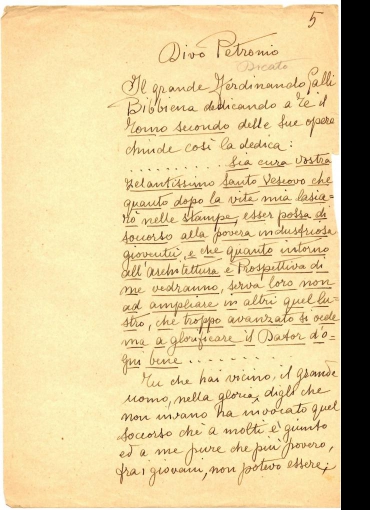 5
Divo Petronio
Dicato
Il grande Ferdinando Galli
Bibbiena dedicando a Te il
Tomo secondo delle sue opere
chiude così la dedica:
.......... Sia cura vostra
Zelantissimo Santo Vescovo che
quanto dopo la vita mia lascia-
rò nelle stampe, esser possa di
soccorso alla povera industriosa
gioventù, e che quanto intorno
all'Architettura e Prospettiva di
me vedranno, serva loro non
ad ampliare in altri quel lu-
stro, che troppo avanzato si vede
ma a glorificare il Dator d'o-
gni bene ..........
Tu che hai vicino, il grande
uomo, nella gloria, digli che
non invano ha invocato quel
soccorso ch'è a molti è giunto
ed a me pure che più povero,
fra i giovani, non potevo essere;